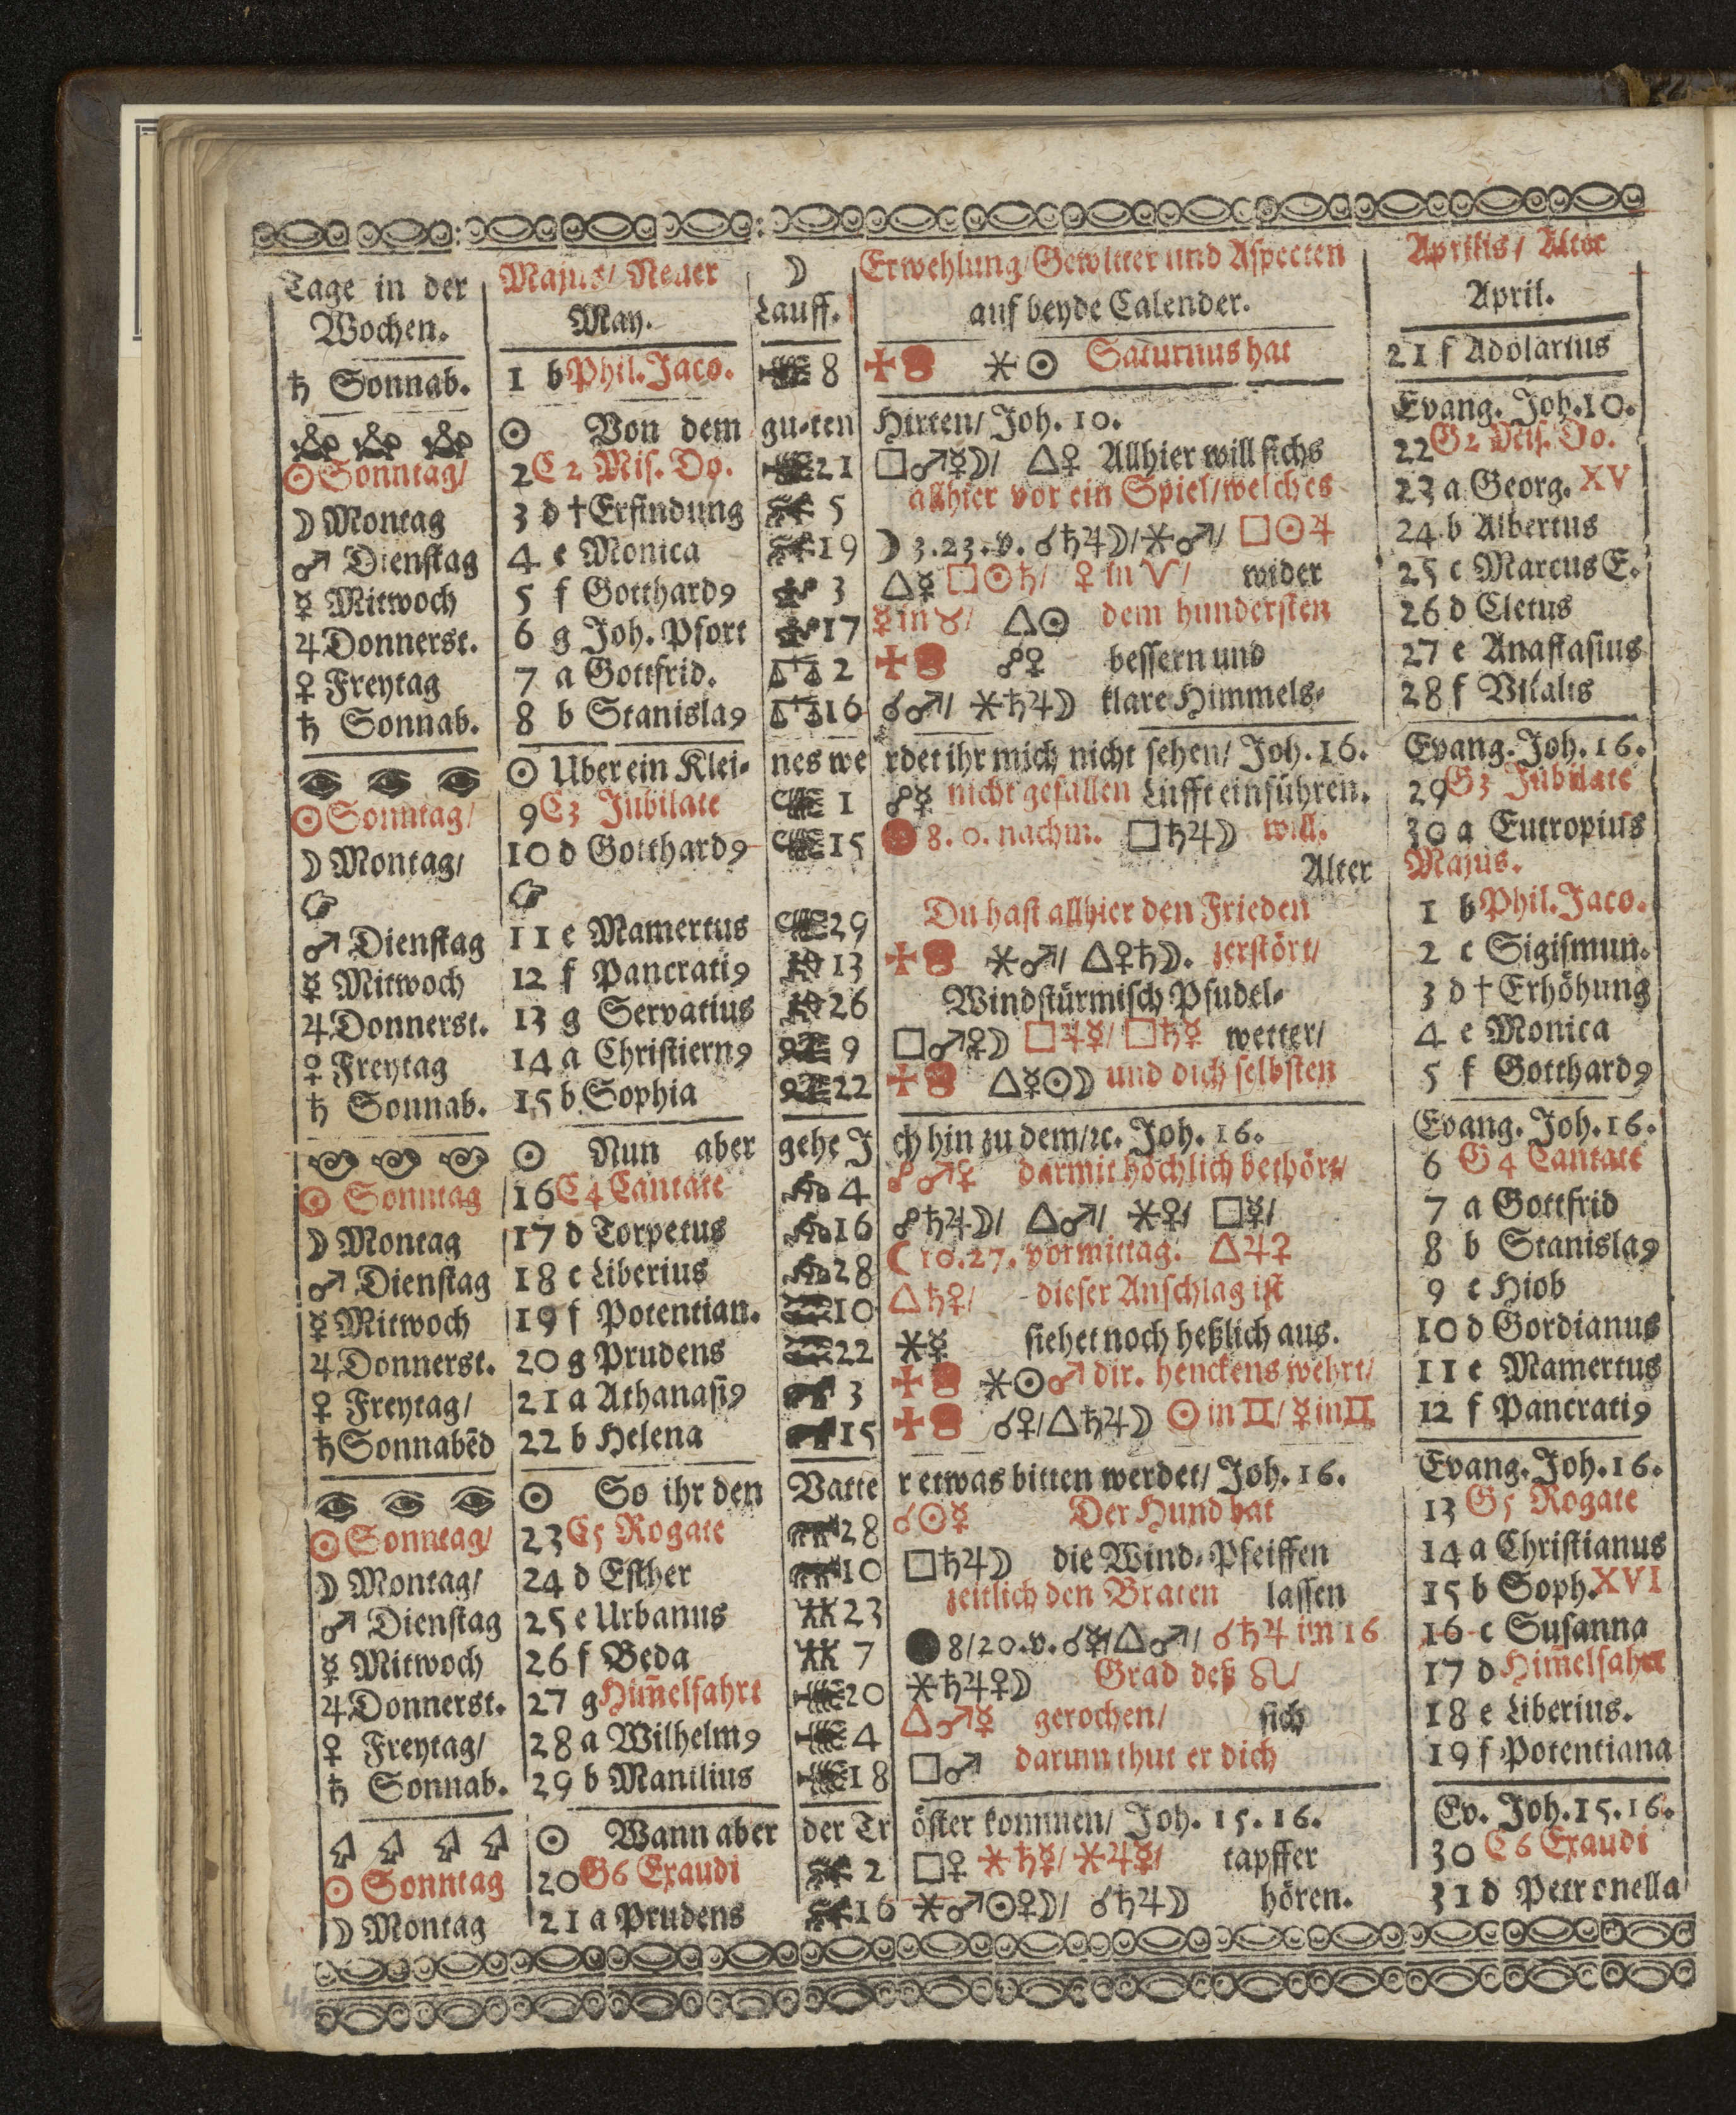 Tage in der Majus/ Neuer ☽ Erwehlung/Gewitter und Aspecten Aprilis/ Alter
Wochen. May. Lauff. auf beyde Calender. April.
♄ Sonnab. 1 b Phil. Jaco. 8 ⚹ ☉ Saturnus hat 21 f Adolarius
☉ Von dem gu-ten Hirten/ Joh. 10. Evang. Joh. 10.
☉ Sonntag/ 2 C 2 Mis. Do. 21 □♂☿☽/ △♀ Allhier will sichs 22 G 2 Mis. Do.
☽ Montag 3 d † Erfindung 5 allhier vor ein Spiel/welches 23 a Georg. XV
♂ Dienstag 4 e Monica 19 ☽ 3.23.v. ☌♄♃☽/⚹♂/ □☉♃ 24 b Albertus
☿ Mitwoch 5 f Gotthard9 3 △☿ □☉♄/ ♀ in ♈/ wider 25 c Marcus E.
♃ Donnerst. 6 g Joh. Pfort 17 ☿ in ♉/ △☉ dem hundersten 26 d Cletus
♀ Freytag 7 a Gottfrid. 2 ☍♀ bessern und 27 e Anastasius
♄ Sonnab. 8 b Stanisla9 16 ☌♂/ ⚹♄♃☽ klare Himmels- 28 f Vitalis
☉ Uber ein Klei- nes we rdet ihr mich nicht sehen/ Joh. 16. Evang. Joh. 16.
☉ Sonntag/ 9 C 3 Jubilate 1 ☍☿ nicht gefallen Lufft einführen. 29 G 3 Jubilate
☽ Montag/ 10 d Gotthard9 15 8. 0. nachm. □♄♃☽ will. 30 a Eutropius
Alter Majus.
♂ Dienstag 11 e Mamertus 29 Du hast allhier den Frieden 1 b Phil. Jaco.
☿ Mitwoch 12 f Pancrati9 13 ⚹♂/ △♀♄☽. zerstört/ 2 c Sigismun.
♃ Donnerst. 13 g Servatius 26 Windstürmisch Pfudel- 3 d † Erhöhung
♀ Freytag 14 a Christiern9 9 □♂♀☽ □♃☿/ □♄☿ wetter/ 4 e Monica
♄ Sonnab. 15 b Sophia 22 △☿☉☽ und dich selbsten 5 f Gotthard9
☉ Nun aber gehe J ch hin zu dem/ꝛc. Joh. 16. Evang. Joh. 16.
☉ Sonntag 16 C 4 Cantate 4 ☍♂♀ darmit höchlich bethört/ 6 G 4 Cantate
☽ Montag 17 d Torpetus 16 ☍♄♃☽/ △♂/ ⚹♀/ □☿/ 7 a Gottfrid
♂ Dienstag 18 e Liberius 28 ☾ 10.27. vormittag. △♃♀ 8 b Stanisla9
☿ Mitwoch 19 f Potentian. 10 △♄♀/ - dieser Anschlag ist 9 c Hiob
♃ Donnerst. 20 g Prudens 22 ⚹☿ siehet noch heßlich aus. 10 d Gordianus
♀ Freytag/ 21 a Athanasi9 3 ⚹☉♂ dir. henckens wehrt/ 11 e Mamertus
♄ Sonnabēd 22 b Helena 15 ☌♀/△♄♃☽ ☉ in ♊/ ☿ in ♊ 12 f Pancrati9
☉ So ihr den Vatte r etwas bitten werdet/ Joh. 16. Evang. Joh. 16.
☉ Sonntag/ 23 C 5 Rogate 28 ☌☉☿ Der Hund hat 13 G 5 Rogate
☽ Montag/ 24 d Esther 10 □♄♃☽ die Wind-Pfeiffen 14 a Christianus
♂ Dienstag 25 e Urbanus 23 zeitlich den Braten lassen 15 b Soph. XVI
☿ Mitwoch 26 f Beda 7 ● 8/20.v. ☌☿/△♂/ ☌♄♃ im 16 16 c Susanna
♃ Donnerst. 27 g Him̃elfahrt 20 ⚹♄♃♀☽ Grad deß ♌/ 17 d Him̃elfahrt
♀ Freytag/ 28 a Wilhelm9 4 △♂☿ gerochen/ sich 18 e Liberius.
♄ Sonnab. 29 b Manilius 18 □♂ darum thut er dich 19 f Potentiana
☉ Wann aber der Tr öster kommen/ Joh. 15. 16. Ev. Joh. 15. 16.
☉ Sonntag 20 G 6 Exaudi 2 □♀ ⚹♄☿/ ⚹♃☿/ tapffer 30 C 6 Exaudi
☽ Montag 21 a Prudens 16 ⚹♂☉♀☽/ ☌♄♃☽ hören. 31 d Petronella